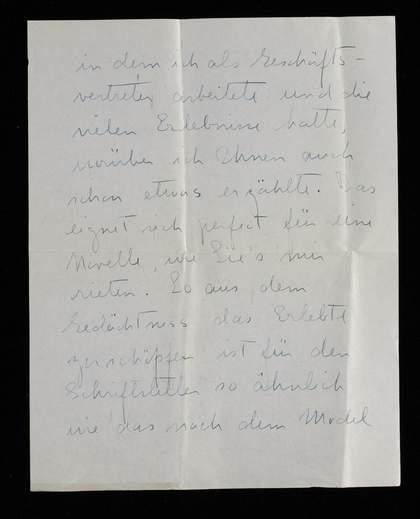 in dem ich als Geschäfts-
vertreter arbeitete und die
vielen Erlebnisse hatte,
worüber ich Ihnen auch
schon etwas erzählte. Das
eignet sich perfect für eine
Novelle, wie Sie's mir
rieten. So aus dem
Gedächtniss das Erlebte
zu schöpfen ist für den
Schriftsteller so ähnlich
wie das nach dem Model